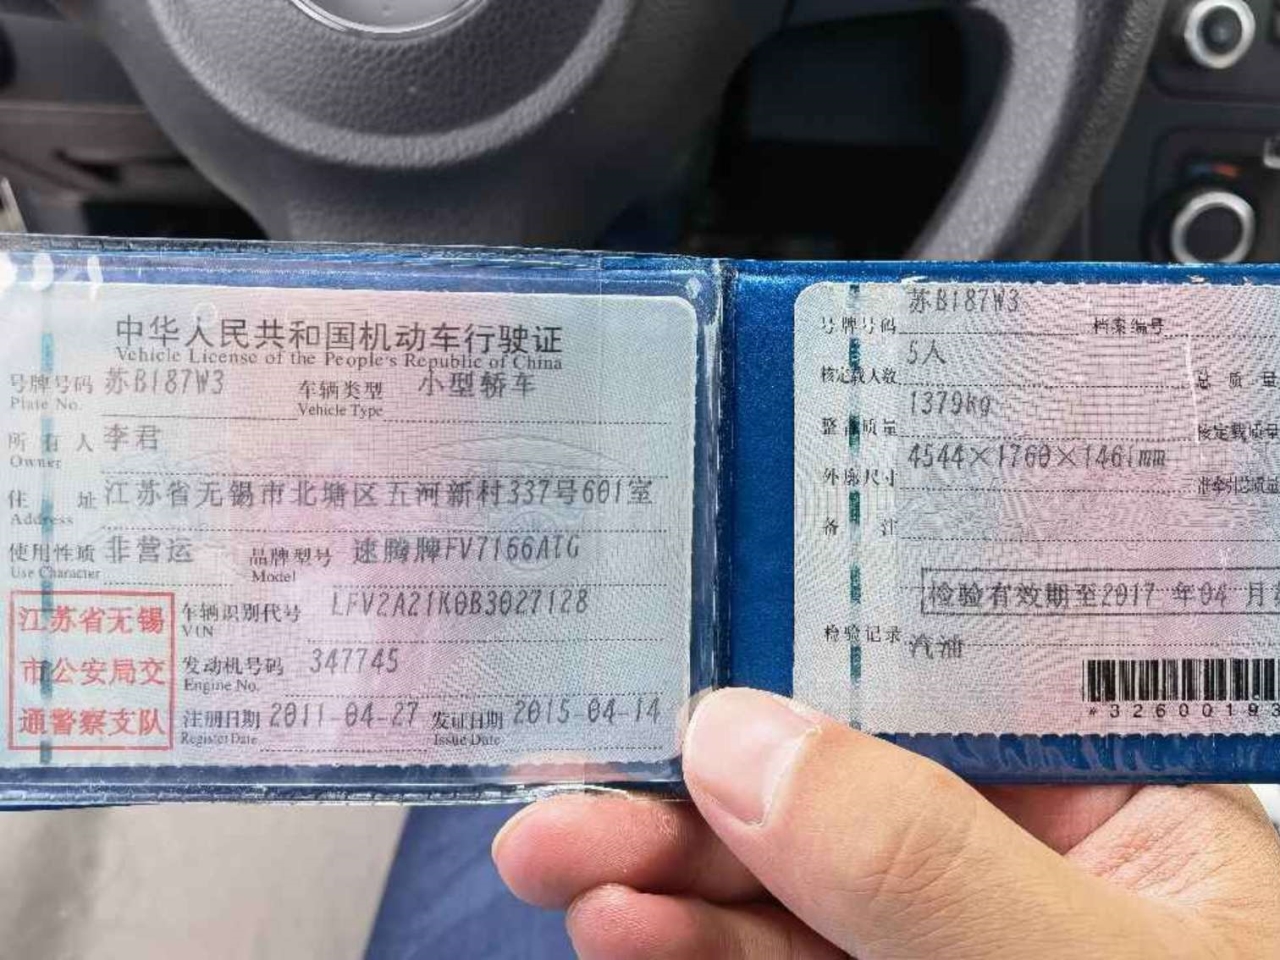 中华人民共和国机动车行驶证
Vehicle License of the People's Republic of China
号牌号码 苏B187W3 车辆类型 小型轿车
Plate No. Vehicle Type
所有人 李君
Owner
住址 江苏省无锡市北塘区五河新村337号601室
Address
使用性质 非营运 品牌型号 速腾牌FV7166ATG
Use Character Model
车辆识别代号 LFV2A21K0B3027128
VIN
发动机号码 347745
Engine No.
注册日期 2011-04-27 发证日期 2015-04-14
Register Date Issue Date
江苏省无锡
市公安局交
通警察支队
号牌号码 苏B187W3 档案编号
核定载人数 5人 总质量
整备质量 1379kg 核定载质量
外廓尺寸 4544×1760×1461mm 准牵引总质量
备注
检验有效期至2017年04月
检验记录 汽油
*32600193